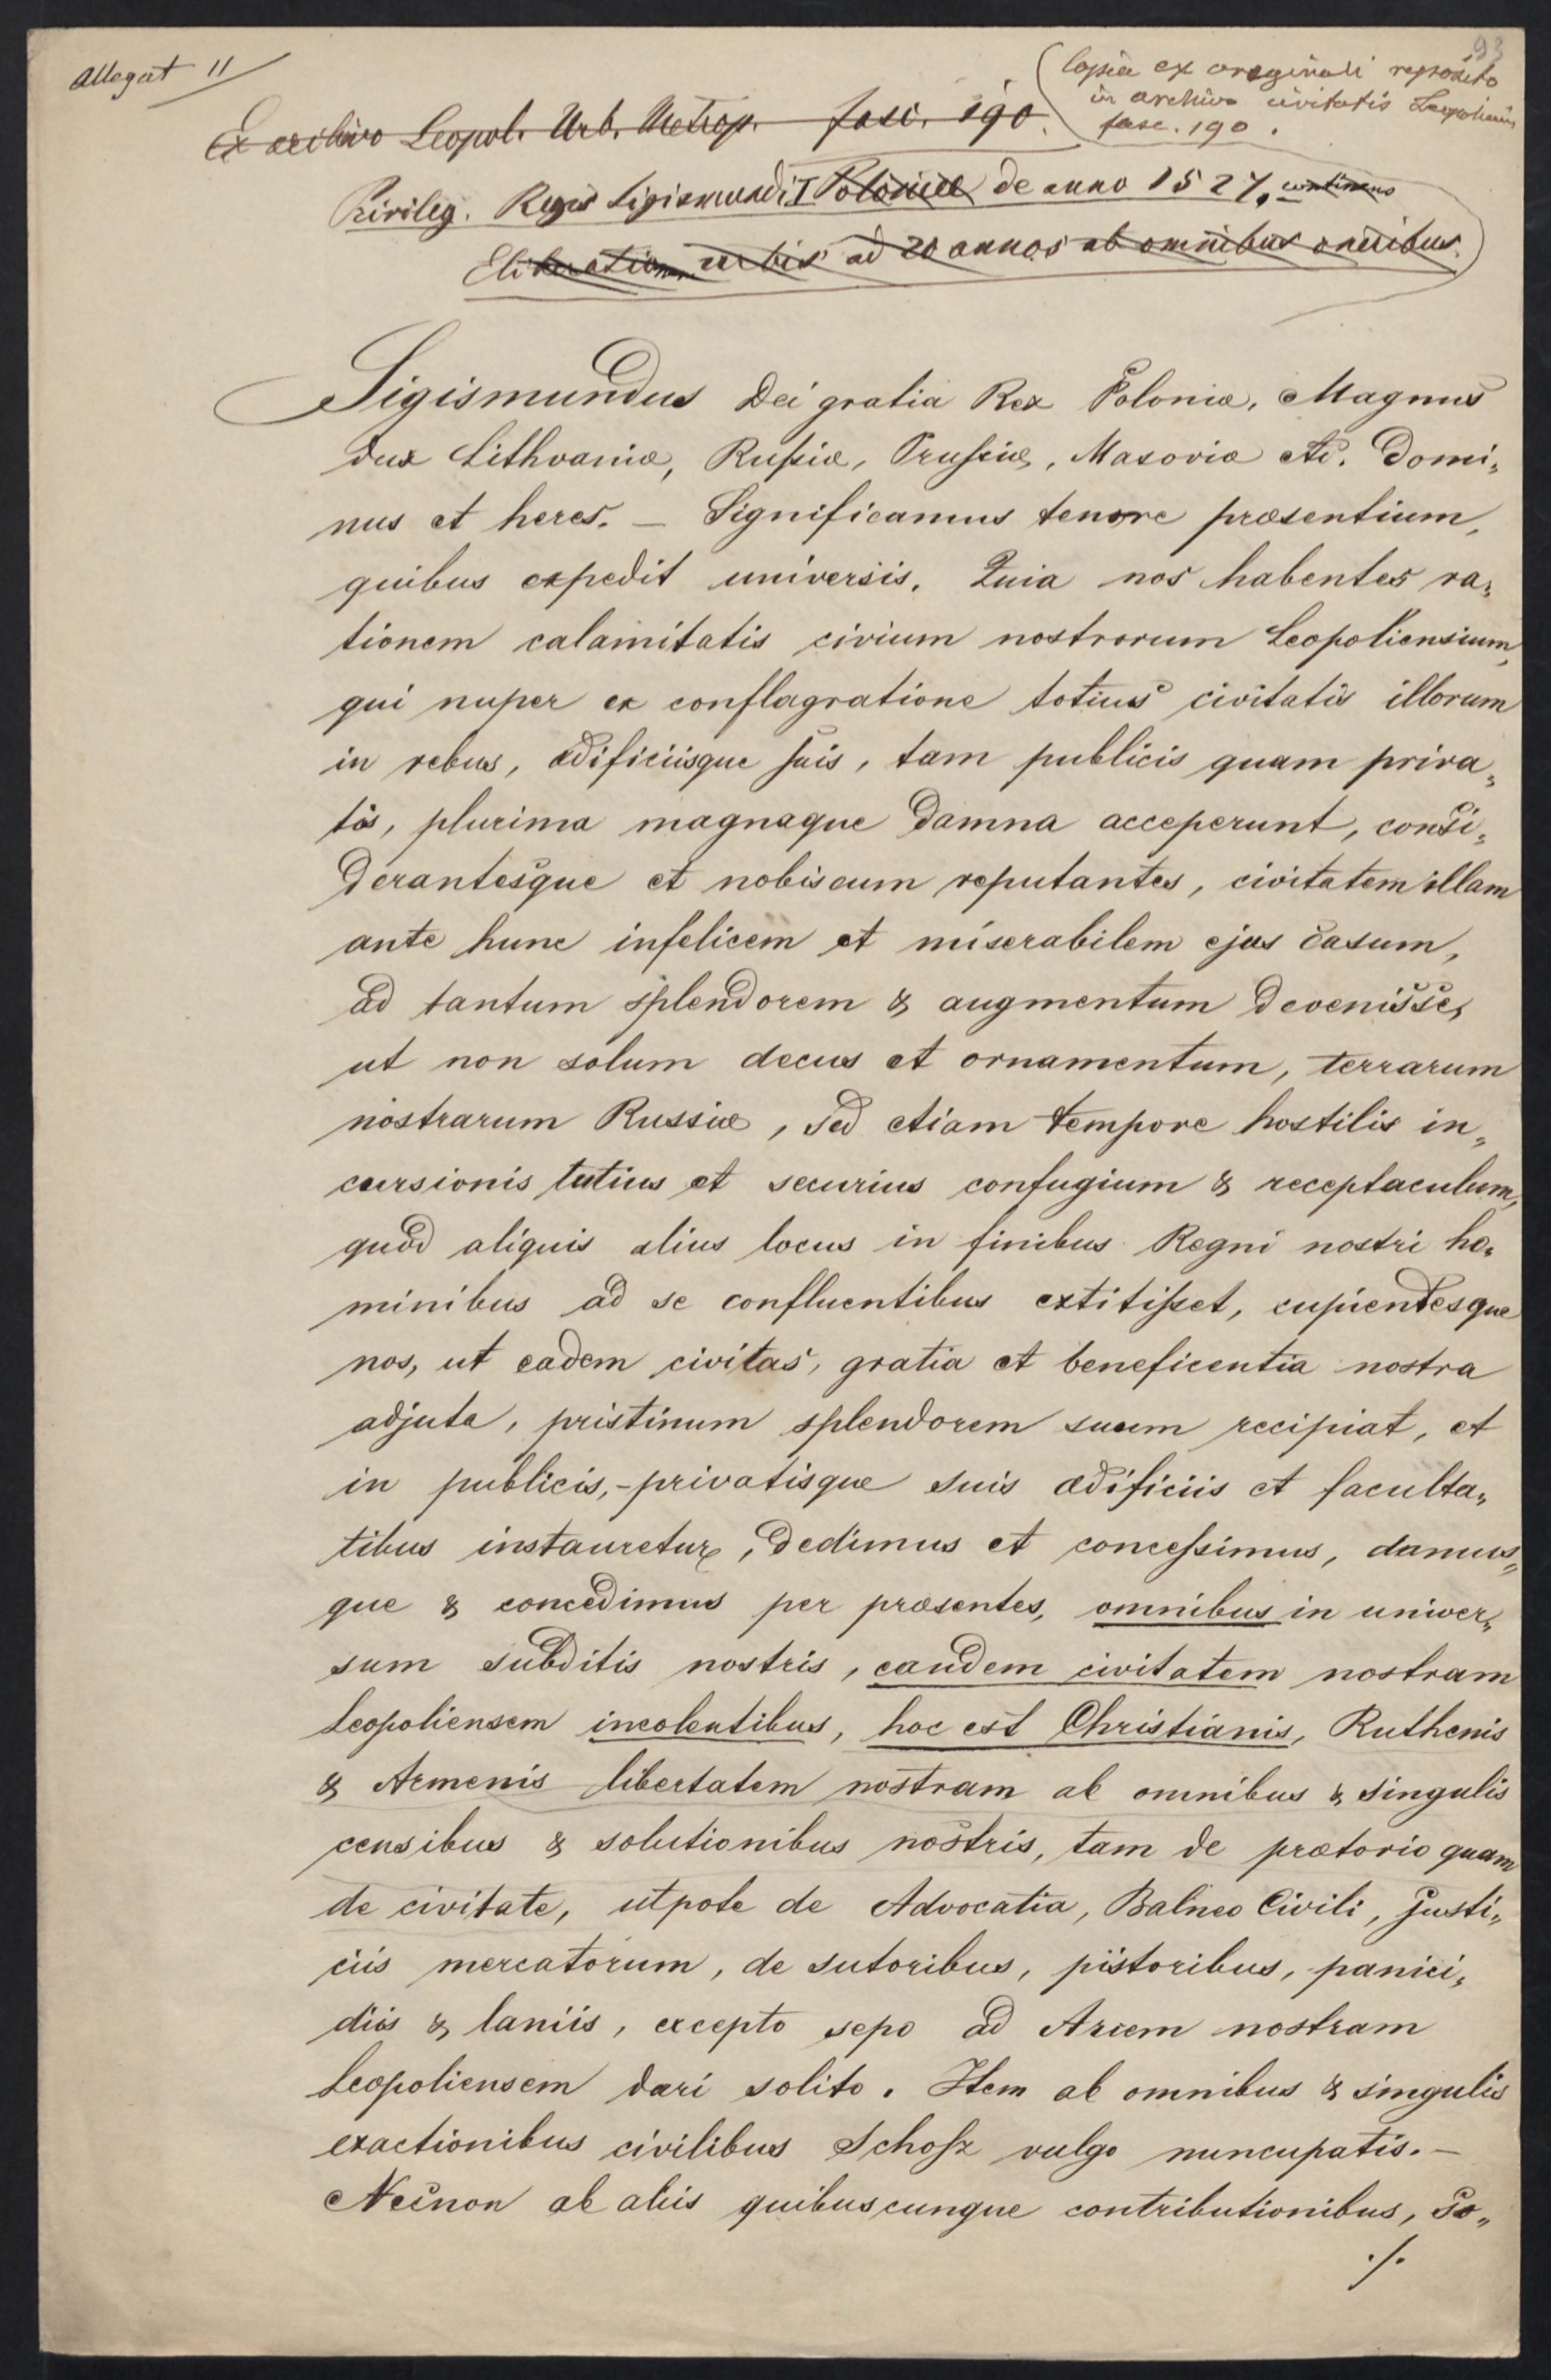 Allegat 11
93
Copia ex originali reposito
in archivo civitatis Leopoliensis
fasc. 190.
Ex archivo Leopol. Urb. Metrop. fasc. 190.
Privileg. Regis Sigismundi I Poloniæ de anno 1527, continens
Eliberationem urbis ad 20 annos ab omnibus oneribus.
Sigismundus Dei gratia Rex Poloniæ, Magnus
dux Lithvaniæ, Rußiæ, Prußiæ, Masoviæ etc. Domi„
nus et heres. — Significamus tenore præsentium,
quibus expedit universis. Quia nos habentes ra„
tionem calamitatis civium nostrorum Leopoliensium,
qui nuper ex conflagratione totius civitatis illorum
in rebus, ædificiisque suis, tam publicis quam priva„
tis, plurima magnaque damna acceperunt, consi„
derantesque et nobiscum reputantes, civitatem illam
ante hunc infelicem et miserabilem ejus casum,
ad tantum splendorem & augmentum devenisse,
ut non solum decus et ornamentum, terrarum
nostrarum Russiæ, sed etiam tempore hostilis in„
cursionis tutius et securius confugium & receptaculum,
quod aliquis alius locus in finibus Regni nostri ho„
minibus ad se confluentibus extitißet, cupientesque
nos, ut eadem civitas, gratia et beneficentia nostra
adjuta, pristinum splendorem suum recipiat, et
in publicis,-privatisque suis ædificiis et faculta„
tibus instauretur, dedimus et conceßimus, damus„
que & concedimus per præsentes, omnibus in univer„
sum subditis nostris, eandem civitatem nostram
Leopoliensem incolentibus, hoc est Christianis, Ruthenis
& Armenis libertatem nostram ab omnibus & singulis
censibus & solutionibus nostris, tam de prætorio quam
de civitate, utpote de Advocatia, Balneo Civili, justi„
ciis mercatorum, de sutoribus, pistoribus, panici„
diis & laniis, excepto sepo ad Arcem nostram
Leopoliensem dari solito. Item ab omnibus & singulis
exactionibus civilibus Schoß vulgo nuncupatis. —
Necnon ab aliis quibuscunque contributionibus, so„
./.